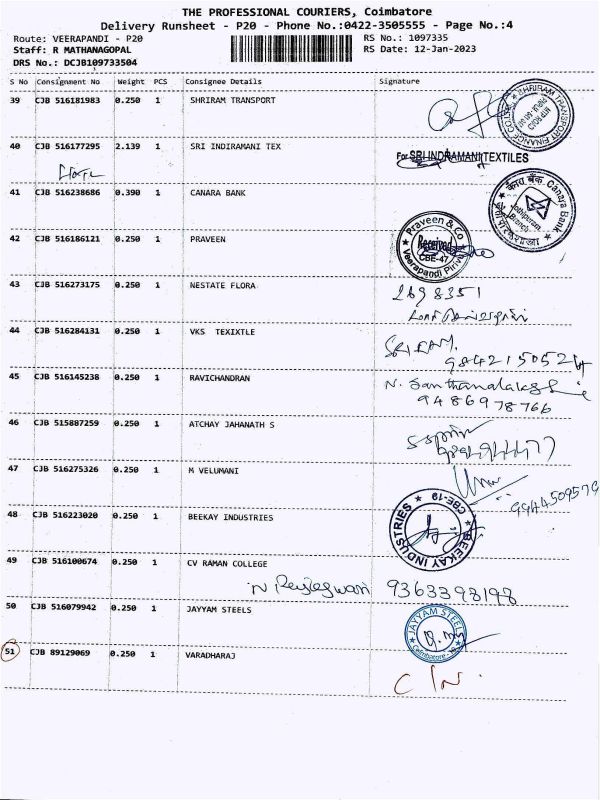 THE PROFESSIONAL COURIERS, Coimbatore
Delivery Runsheet - P20 - Phone No.:0422-3505555 - Page No.:4
Route: VEERAPANDI - P20 RS No.: 1097335
Staff: R MATHANAGOPAL RS Date: 12-Jan-2023
DRS No.: DCJB109733504
S No Consignment No Weight PCS Consignee Details Signature
39 CJB 516181983 0.250 1 SHRIRAM TRANSPORT
SHRIRAM TRANSPORT FINANCE CO LTD
40 CJB 516177295 2.139 1 SRI INDIRAMANI TEX
For SRI INDRAMANI TEXTILES
41 CJB 516238686 0.390 1 CANARA BANK
केनरा बैंक Canara Bank
Jothipuram
Branch
42 CJB 516186121 0.250 1 PRAVEEN
Praveen & Co
Received
CBE-47
Veerapandi Pirivu
43 CJB 516273175 0.250 1 NESTATE FLORA
2698351
44 CJB 516284131 0.250 1 VKS TEXIXTLE
SRI RAM.
9842150524
45 CJB 516145238 0.250 1 RAVICHANDRAN
9486978766
46 CJB 515887259 0.250 1 ATCHAY JAHANATH S
47 CJB 516275326 0.250 1 M VELUMANI
9944509579
48 CJB 516223020 0.250 1 BEEKAY INDUSTRIES
BEEKAY INDUSTRIES
CBE-19
49 CJB 516100674 0.250 1 CV RAMAN COLLEGE
9363398198
50 CJB 516079942 0.250 1 JAYYAM STEELS
JAYYAM STEELS
Coimbatore
51 CJB 89129069 0.250 1 VARADHARAJ
C/N.